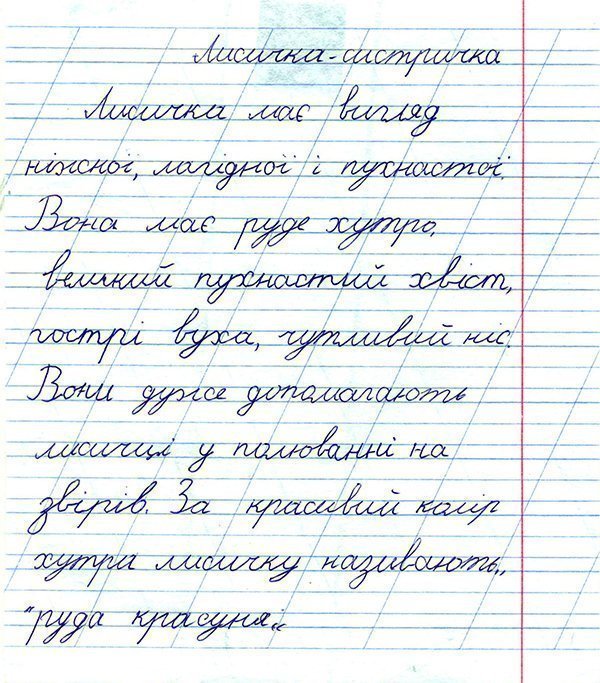 Лисичка-систричка
Лисичка має вигляд
ніжної, лагідної і пухнастої.
Вона має руде хутро,
великий пухнастий хвіст,
гострі вуха, чутливий ніс.
Вони дуже допомагають
лисичці у полюванні на
звірів. За красивий колір
хутра лисичку називають„
"руда красуня„